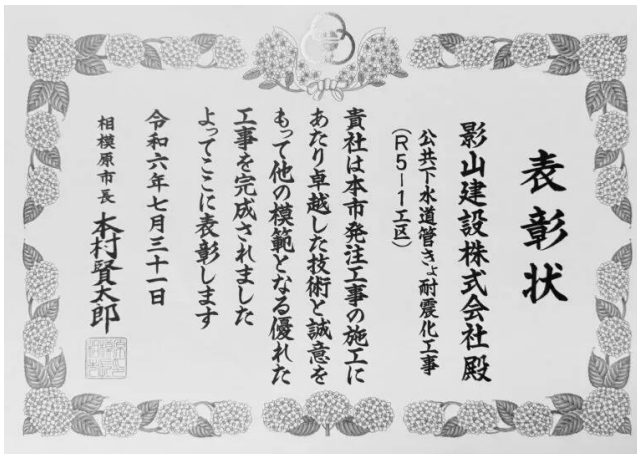 表彰状
影山建設株式会社殿
公共下水道管きょ耐震化工事
(R5-1工区)
貴社は本市発注工事の施工に
あたり卓越した技術と誠意を
もって他の模範となる優れた
工事を完成されました
よってここに表彰します
令和六年七月三十一日
相模原市長 本村賢太郎